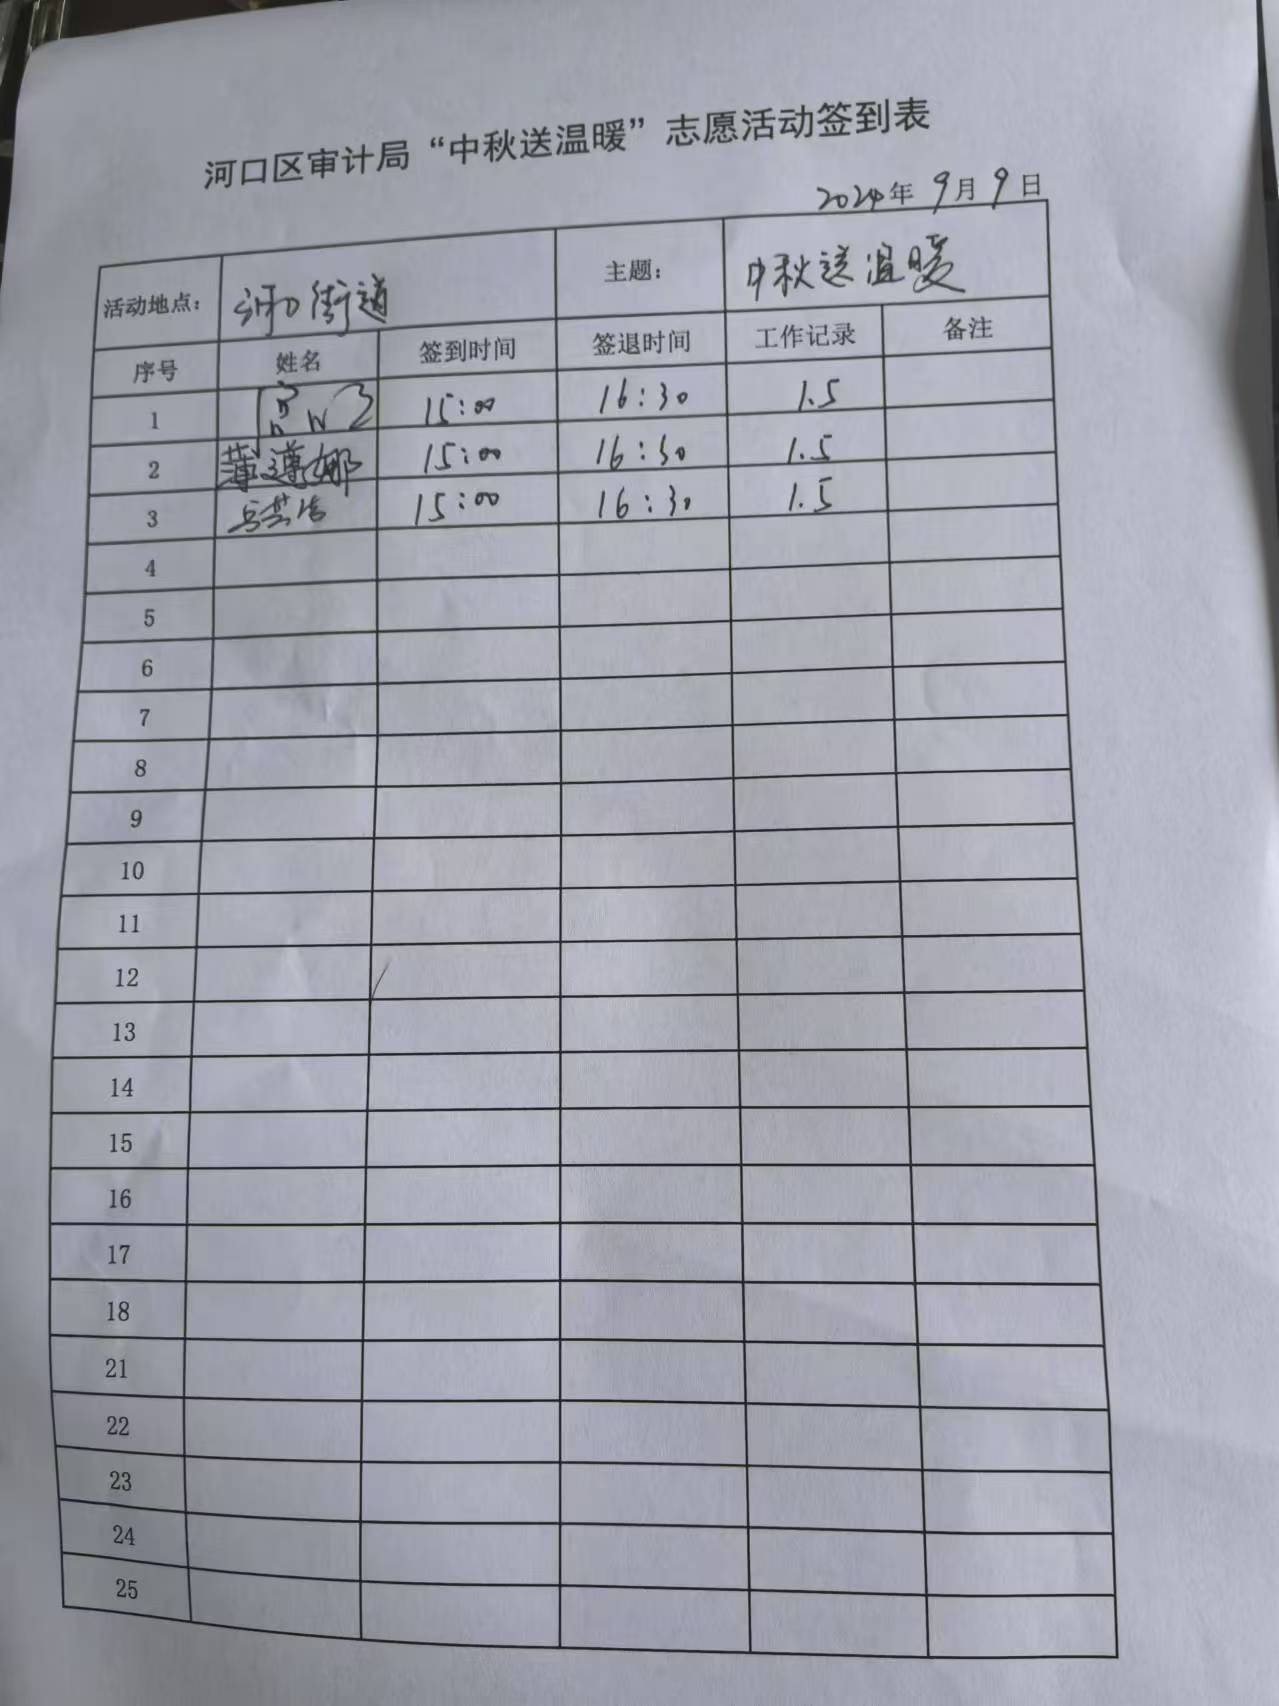 河口区审计局“中秋送温暖”志愿活动签到表
2024年9月9日
活动地点： 河口街道 主题： 中秋送温暖
序号 姓名 签到时间 签退时间 工作记录 备注
1 15:00 16:30 1.5
2 薄遵娜 15:00 16:30 1.5
3 15:00 16:30 1.5
4
5
6
7
8
9
10
11
12
13
14
15
16
17
18
21
22
23
24
25